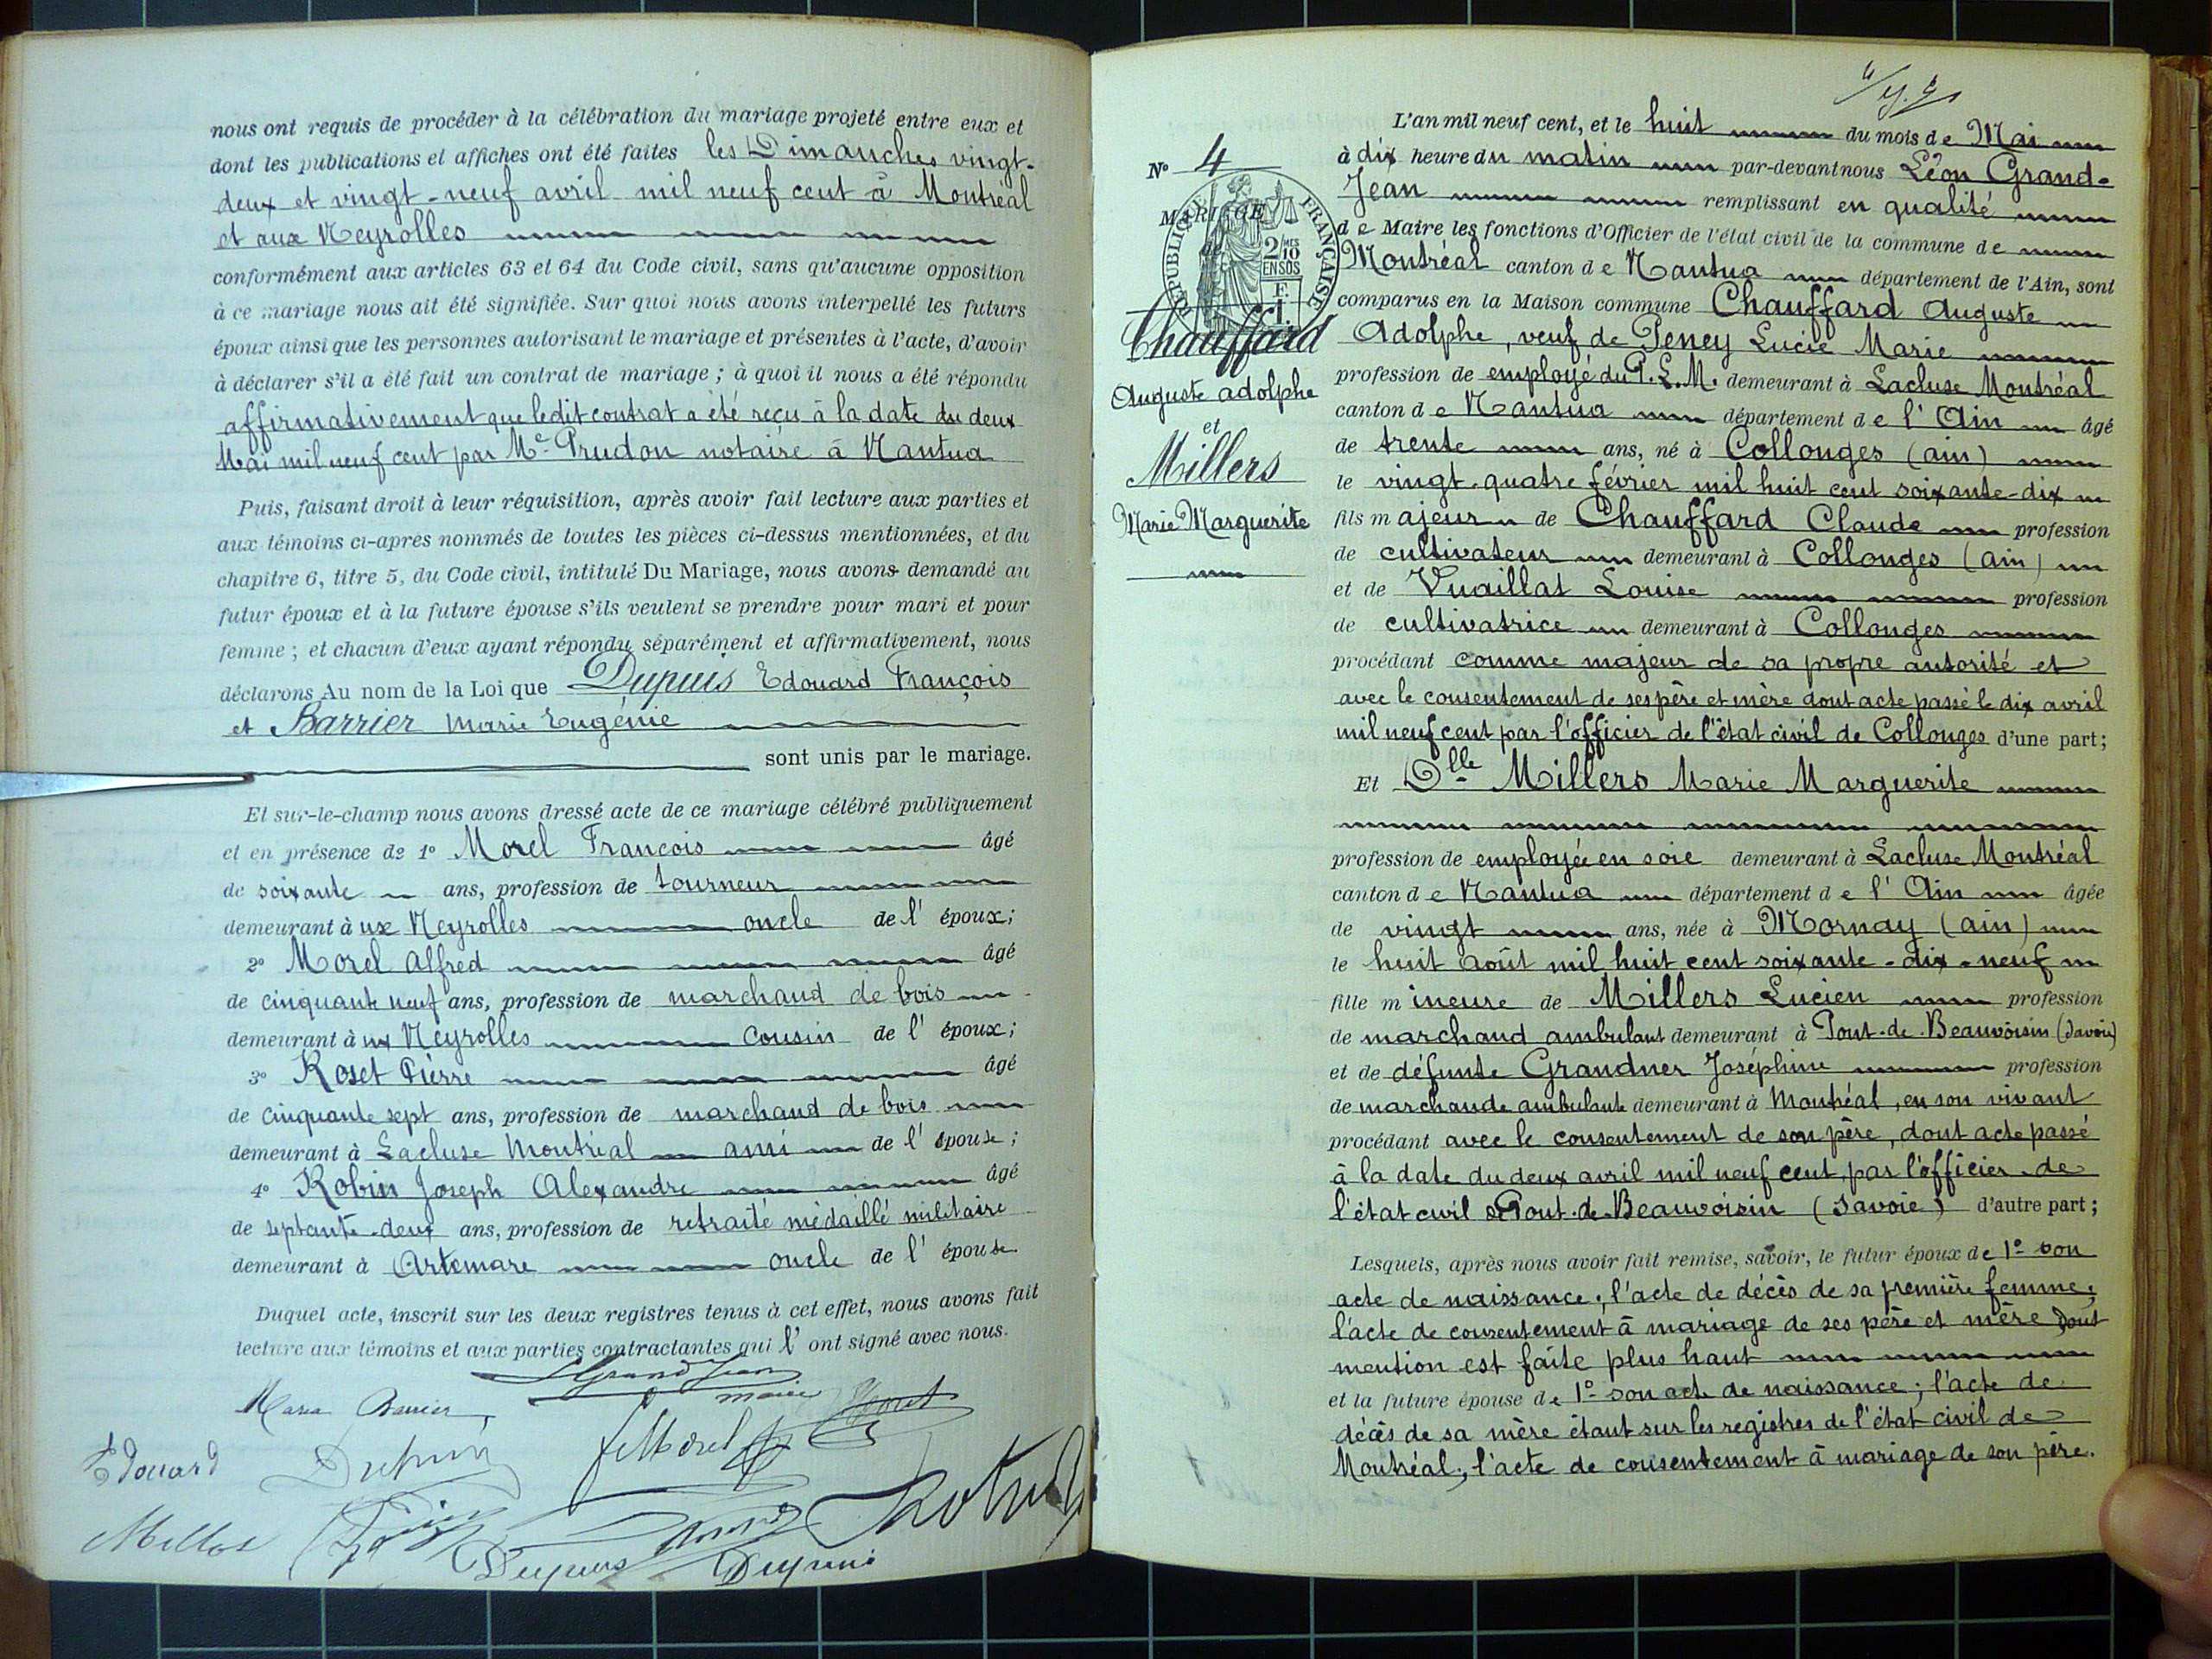 nous ont requis de procéder à la célébration du mariage projeté entre eux et
dont les publications et affiches ont été faites les Dimanches vingt-
deux et vingt-neuf avril mil neuf cent à Montréal
et aux Neyrolles
conformément aux articles 63 et 64 du Code civil, sans qu'aucune opposition
à ce mariage nous ait été signifiée. Sur quoi nous avons interpellé les futurs
époux ainsi que les personnes autorisant le mariage et présentes à l'acte, d'avoir
à déclarer s'il a été fait un contrat de mariage ; à quoi il nous a été répondu
affirmativement que ledit contrat a été reçu à la date du deux
Mai mil neuf cent par Me Prudon notaire à Nantua
Puis, faisant droit à leur réquisition, après avoir fait lecture aux parties et
aux témoins ci-après nommés de toutes les pièces ci-dessus mentionnées, et du
chapitre 6, titre 5, du Code civil, intitulé Du Mariage, nous avons demandé au
futur époux et à la future épouse s'ils veulent se prendre pour mari et pour
femme ; et chacun d'eux ayant répondu séparément et affirmativement, nous
déclarons Au nom de la Loi que Dupuis Edouard François
et Barrier Marie Eugénie
sont unis par le mariage.
Et sur-le-champ nous avons dressé acte de ce mariage célébré publiquement
et en présence de 1° Morel François âgé
de soixante ans, profession de tourneur
demeurant à ux Neyrolles oncle de l'époux;
2° Morel Alfred âgé
de cinquante neuf ans, profession de marchand de bois
demeurant à ux Neyrolles cousin de l'époux;
3° Roset Pierre âgé
de cinquante sept ans, profession de marchand de bois
demeurant à Lacluse Montréal ami de l'épouse ;
4° Robin Joseph Alexandre âgé
de septante-deux ans, profession de retraité médaillé militaire
demeurant à Artemare oncle de l'épouse.
Duquel acte, inscrit sur les deux registres tenus à cet effet, nous avons fait
lecture aux témoins et aux parties contractantes qui l'ont signé avec nous.
LGrandJean
maire
Maria Barrier
Edouard Dupuis
Dupuis
N° 4
MARIAGE
RÉPUBLIQUE FRANÇAISE
2 MES 10
EN SUS
Chauffard
Auguste adolphe
et
Millers
Marie Marguerite
L'an mil neuf cent, et le huit du mois de Mai
à dix heure du matin par-devant nous Léon Grand-
Jean remplissant en qualité
de Maire les fonctions d'Officier de l'état civil de la commune de
Montréal canton de Nantua département de l'Ain, sont
comparus en la Maison commune Chauffard Auguste
Adolphe, veuf de Peney Lucie Marie
profession de employé du P.L.M. demeurant à Lacluse Montréal
canton de Nantua département de l'Ain âgé
de trente ans, né à Collonges (ain)
le vingt-quatre février mil huit cent soixante-dix
fils majeur de Chauffard Claude profession
de cultivateur demeurant à Collonges (ain)
et de Vuaillat Louise profession
de cultivatrice demeurant à Collonges
procédant comme majeur de sa propre autorité et
avec le consentement de ses père et mère dont acte passé le dix avril
mil neuf cent par l'officier de l'état civil de Collonges d'une part;
Et Dlle Millers Marie Marguerite
profession de employée en soie demeurant à Lacluse Montréal
canton de Nantua département de l'Ain âgée
de vingt ans, née à Mornay (ain)
le huit août mil huit cent soixante-dix-neuf
fille mineure de Millers Lucien profession
de marchand ambulant demeurant à Pont-de-Beauvoisin (Savoie)
et de défunte Grandner Joséphine profession
de marchande ambulante demeurant à Montréal, en son vivant
procédant avec le consentement de son père, dont acte passé
à la date du deux avril mil neuf cent, par l'officier de
l'état civil de Pont-de-Beauvoisin (Savoie) d'autre part;
Lesquels, après nous avoir fait remise, savoir, le futur époux de 1° son
acte de naissance; l'acte de décès de sa première femme;
l'acte de consentement à mariage de ses père et mère dont
mention est faite plus haut
et la future épouse de 1° son acte de naissance; l'acte de
décès de sa mère étant sur les registres de l'état civil de
Montréal; l'acte de consentement à mariage de son père.